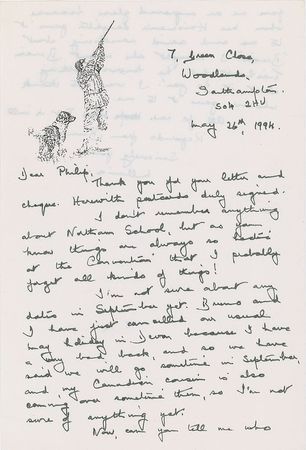 7, Green Close,
Woodlands,
Southampton.
SO4 2HU
May 26th, 1994.
Dear Philip,
Thank you for your letter and
cheque. Herewith postcards duly signed.
I don't remember anything
about Northam School, but as you
know things are always so hectic
at the Convention that I probably
forget all kinds of things!
I'm not sure about any
dates in September yet. Bruno and
I have just cancelled our usual
May holiday in Devon because I have
a very bad back, and so we have
said we will go sometime in September,
and my Canadian cousin is also
coming over sometime then, so I'm not
sure of anything yet.
Now, can you tell me who